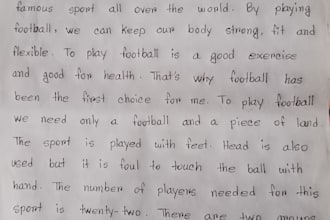 famous sport all over the world. By playing
football, we can keep our body strong, fit and
flexible. To play football is a good exercise
and good for health. That's why football has
been the first choice for me. To play football
we need only a football and a piece of land.
The sport is played with feet. Head is also
used but it is foul to touch the ball with
hand. The number of players needed for this
sport is twenty-two. There are two groups